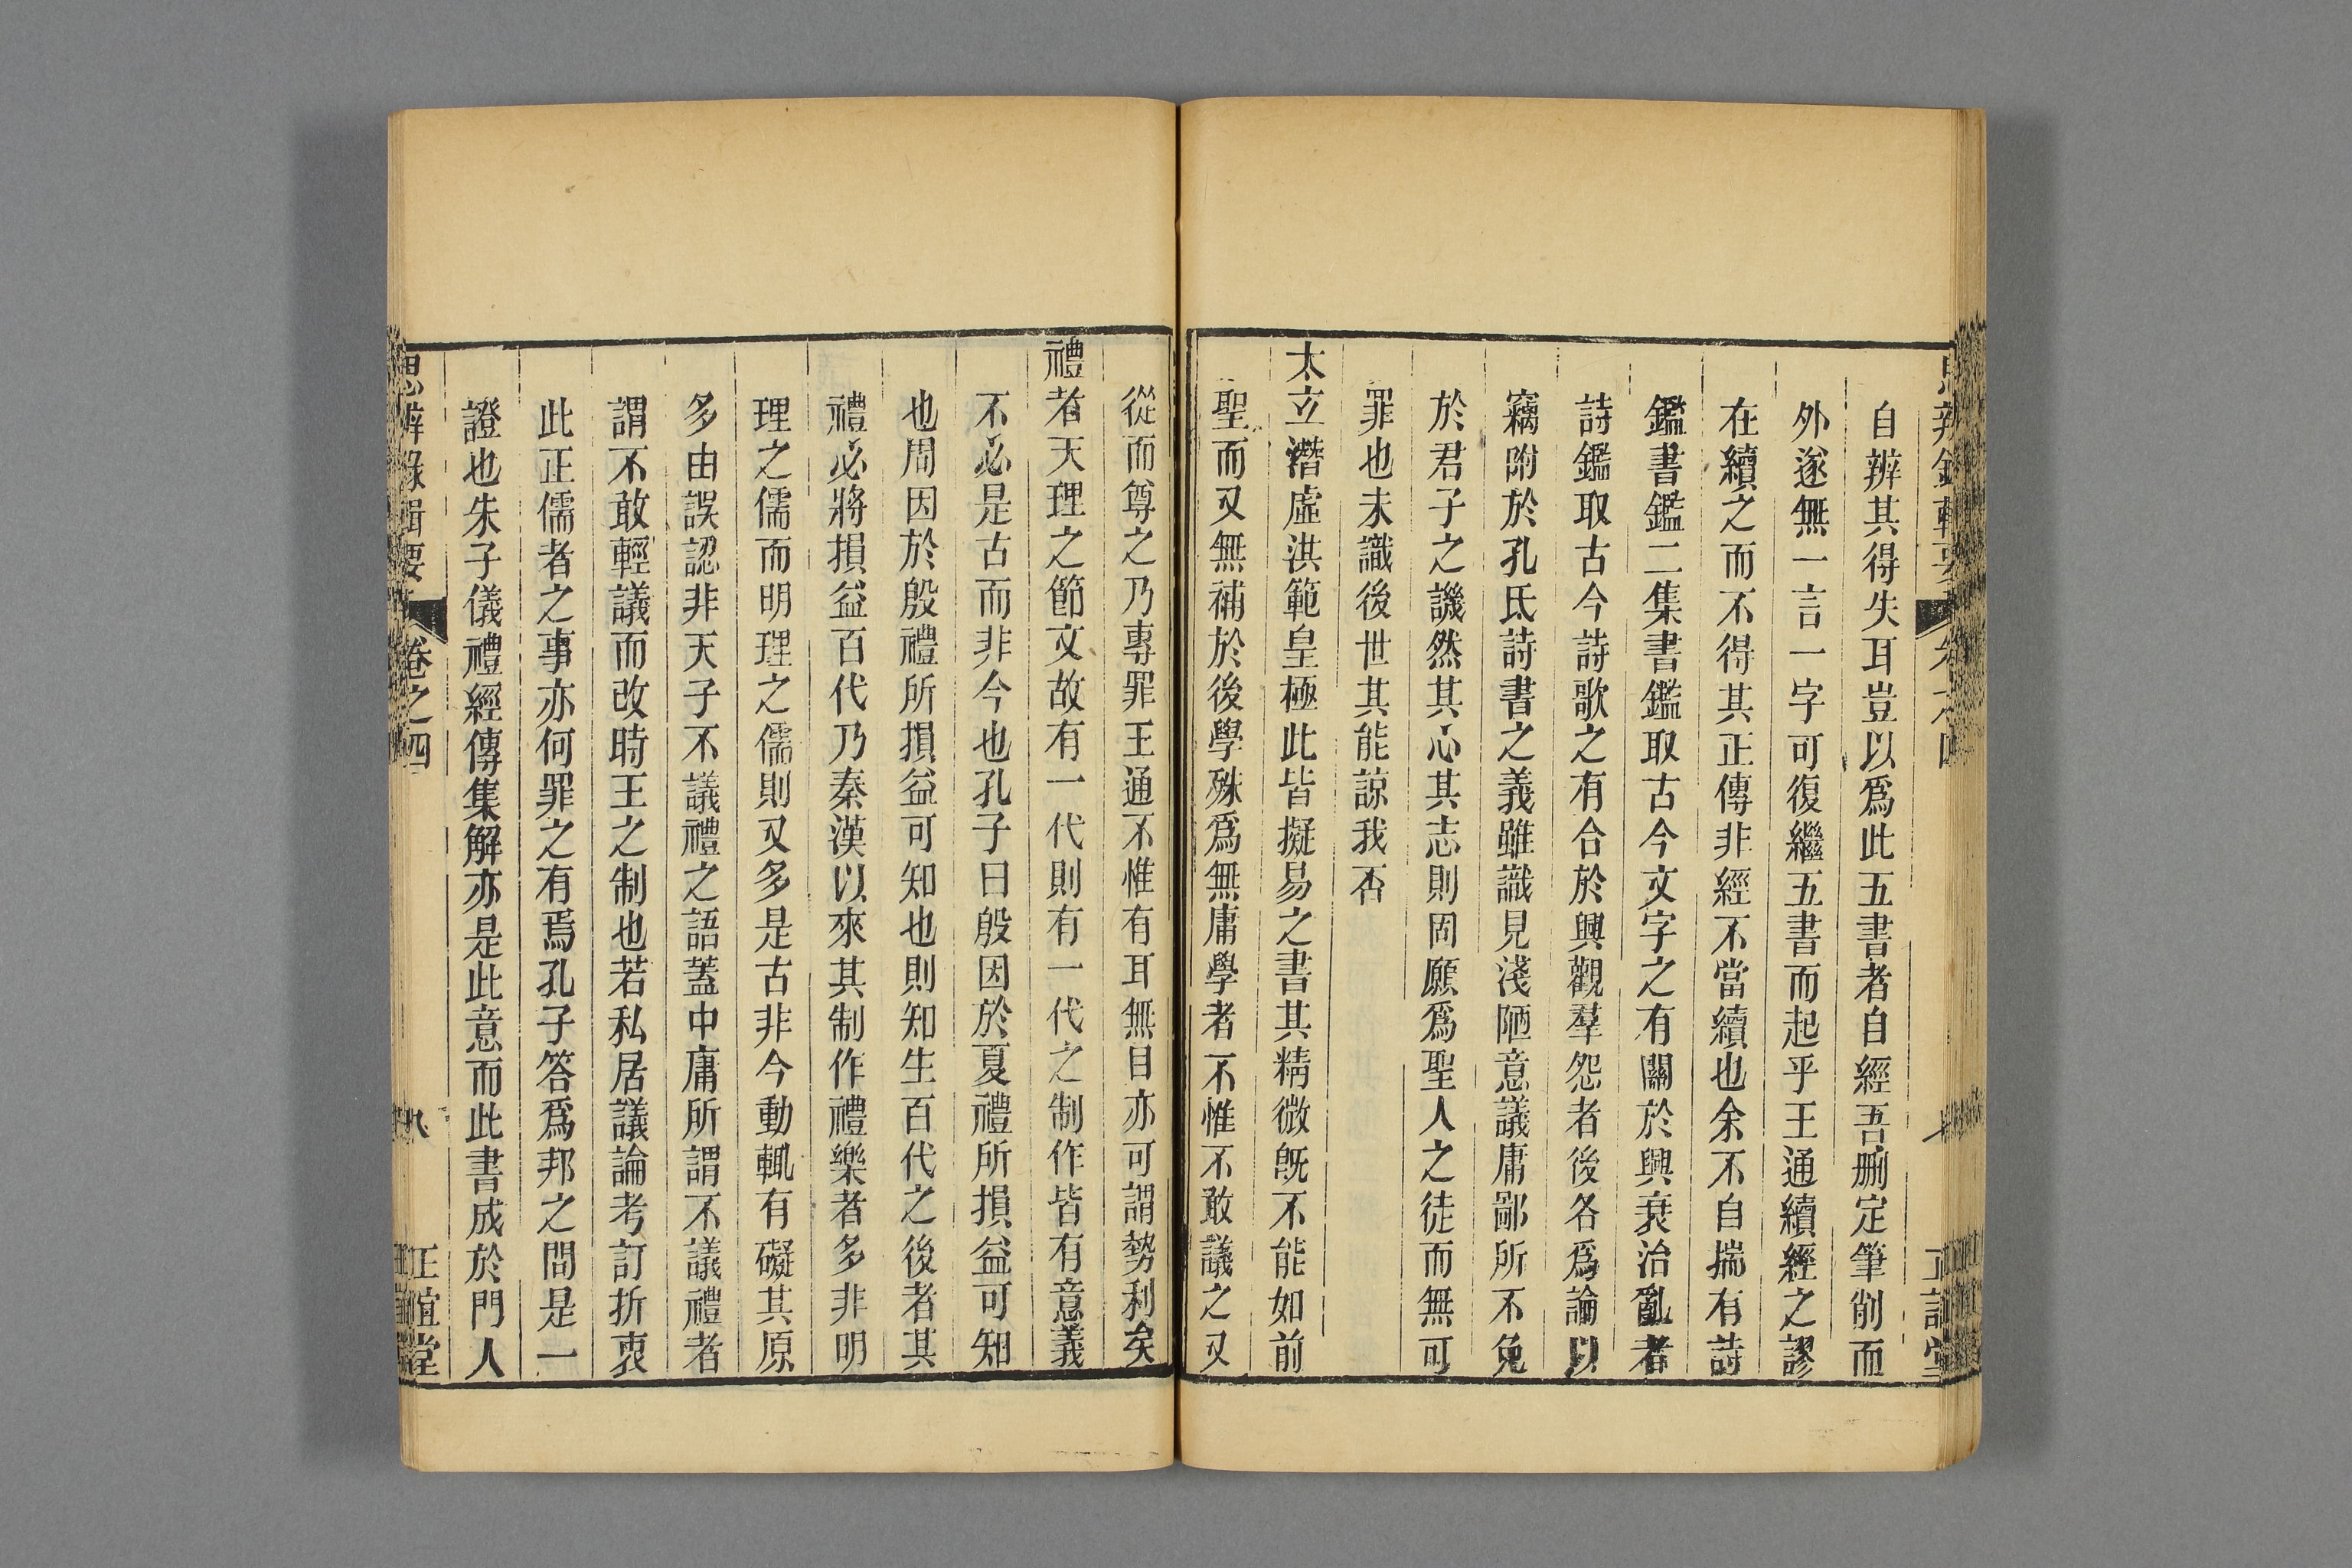 自辨其得失耳豈以爲此五書者自經吾刪定筆削而
外遂無一言一字可復繼五書而起乎王通續經之謬
在續之而不得其正傳非經不當續也余不自揣有詩
鑑書鑑二集書鑑取古今文字之有關於興衰治亂者
詩鑑取古今詩歌之有合於興觀羣怨者後各爲論以
竊附於孔氏詩書之義雖識見淺陋意議庸鄙所不免
於君子之譏然其心其志則固願爲聖人之徒而無可
罪也未識後世其能諒我否
太玄潛虛洪範皇極此皆擬易之書其精微旣不能如前
聖而又無補於後學殊爲無庸學者不惟不敢議之又
從而尊之乃專罪王通不惟有耳無目亦可謂勢利矣
禮者天理之節文故有一代則有一代之制作皆有意義
不必是古而非今也孔子曰殷因於夏禮所損益可知
也周因於殷禮所損益可知也則知生百代之後者其
禮必將損益百代乃秦漢以來其制作禮樂者多非明
理之儒而明理之儒則又多是古非今動輒有礙其原
多由誤認非天子不議禮之語蓋中庸所謂不議禮者
謂不敢輕議而改時王之制也若私居議論考訂折衷
此正儒者之事亦何罪之有焉孔子答爲邦之問是一
證也朱子儀禮經傳集解亦是此意而此書成於門人
思辨錄輯要 卷之四 八 正誼堂